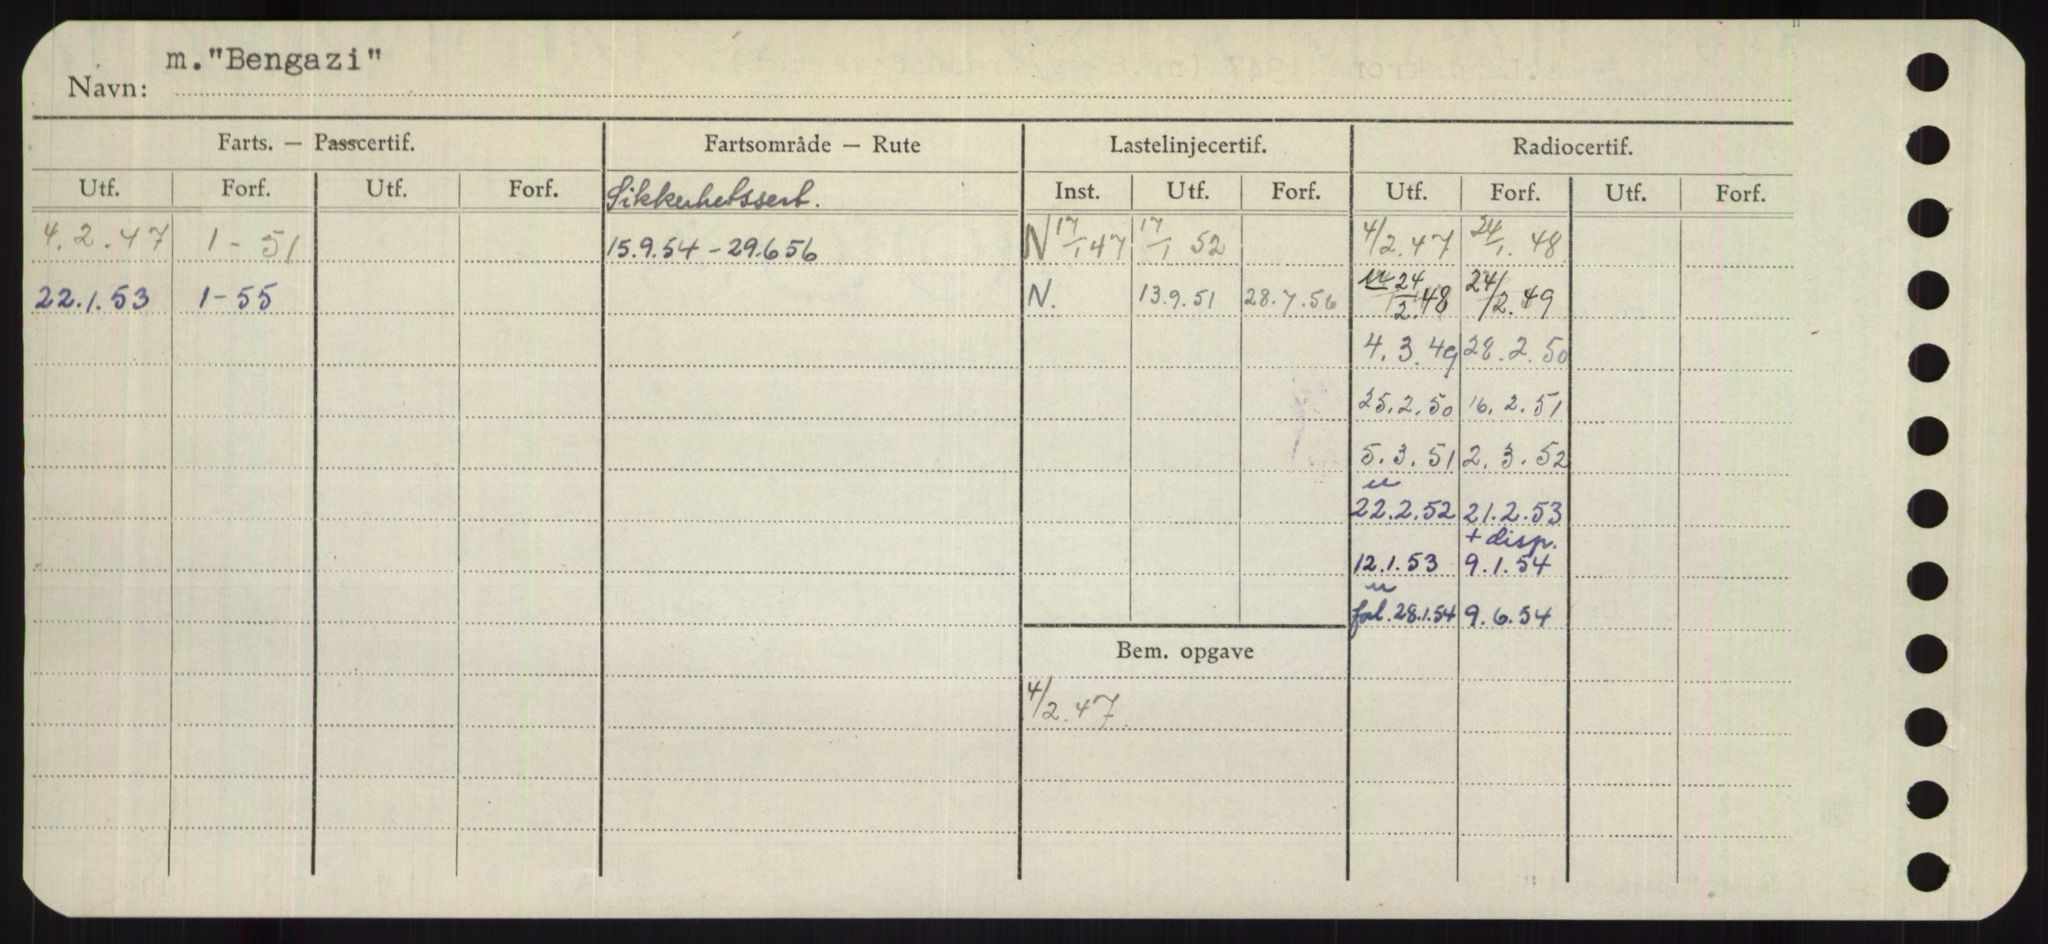 m."Bengazi"
Navn:
Farts. — Passcertif. Fartsområde — Rute Lastelinjecertif. Radiocertif.
Utf. Forf. Utf. Forf. Sikkerhetssert. Inst. Utf. Forf. Utf. Forf. Utf. Forf.
4.2.47 1-51 15.9.54-29.6.56 N 17/1 47 17/1 52 4/2.47 24/1.48
22.1.53 1-55 N. 13.9.51 28.7.56 24/2.48 24/2.49
4.3.49 28.2.50
25.2.50 16.2.51
5.3.51 2.3.52
u
22.2.52 21.2.53
+ disp.
12.1.53 9.1.54
u
forl.28.1.54 9.6.54
Bem. opgave
4/2.47